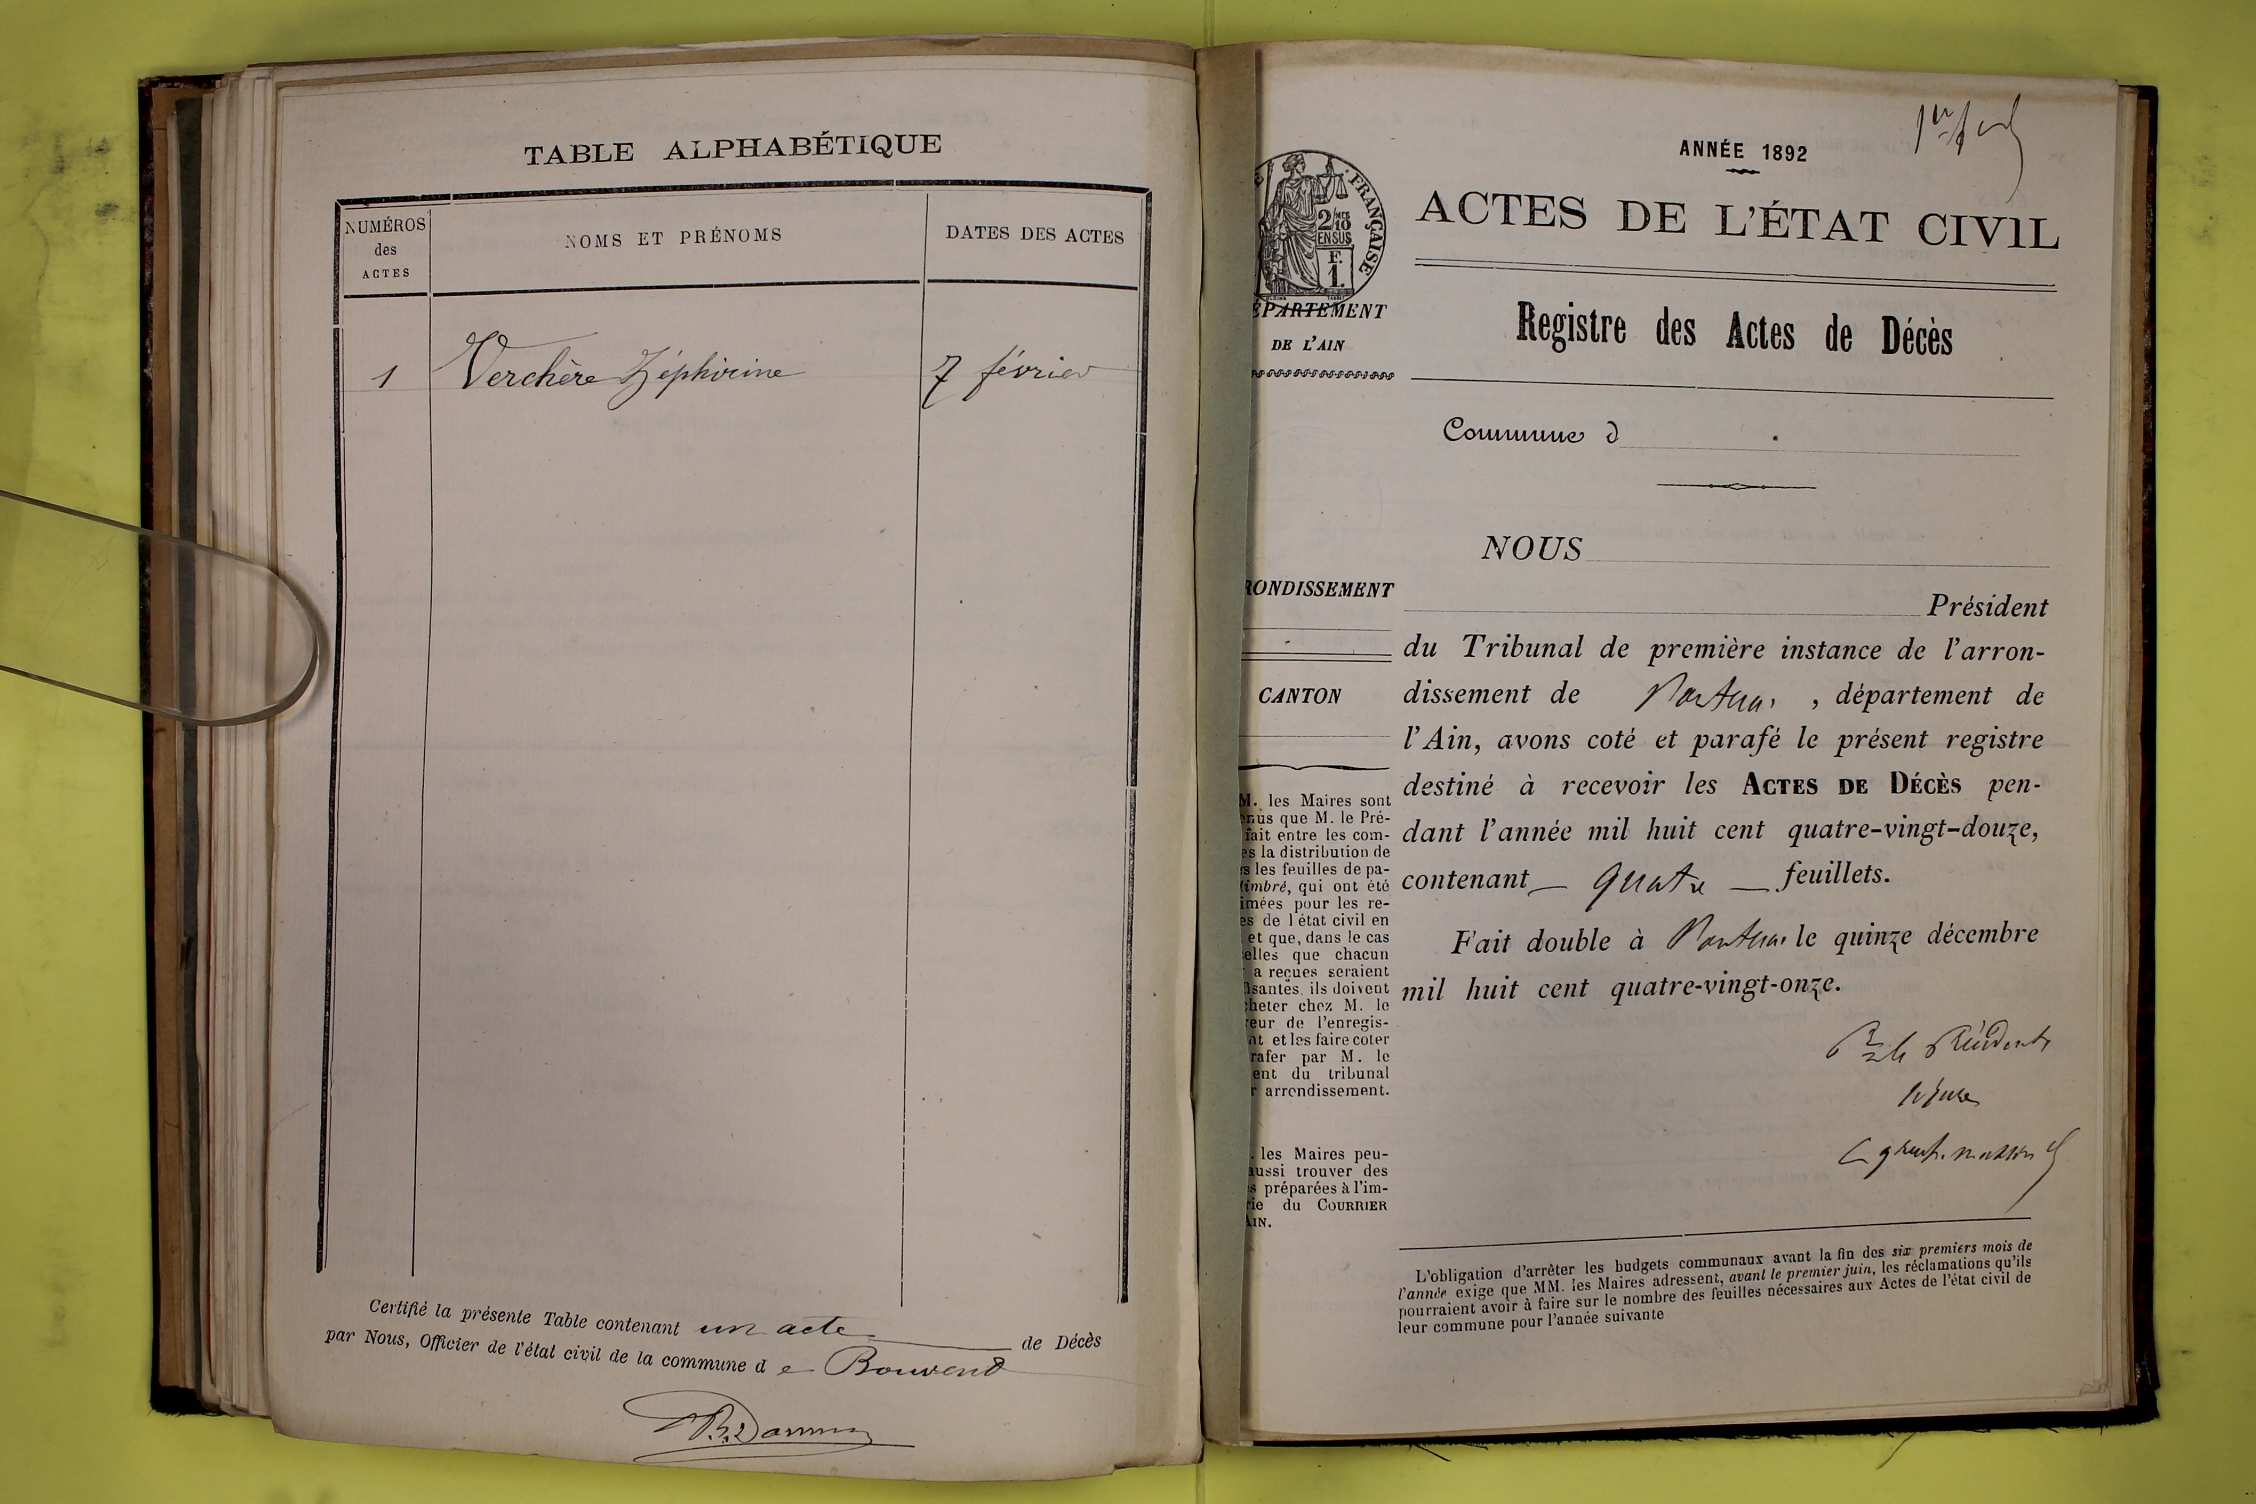 TABLE ALPHABÉTIQUE
NUMÉROS
des
ACTES
NOMS ET PRÉNOMS
DATES DES ACTES
1 Verchère Zéphirine 7 février
Certifié la présente Table contenant un acte de Décès
par Nous, Officier de l'état civil de la commune d e Bouvent
ANNÉE 1892
ACTES DE L'ÉTAT CIVIL
FRANÇAISE
2/10
EN SUS
F.
1.
DÉPARTEMENT
DE L'AIN
Registre des Actes de Décès
Commune d
NOUS
Président
du Tribunal de première instance de l'arron-
dissement de Nantua, département de
l'Ain, avons coté et parafé le présent registre
destiné à recevoir les ACTES DE DÉCÈS pen-
dant l'année mil huit cent quatre-vingt-douze,
contenant quatre feuillets.
Fait double à Nantua le quinze décembre
mil huit cent quatre-vingt-onze.
Pr le Président
L'obligation d'arrêter les budgets communaux avant la fin des six premiers mois de
l'année exige que MM. les Maires adressent, avant le premier juin, les réclamations qu'ils
pourraient avoir à faire sur le nombre des feuilles nécessaires aux Actes de l'état civil de
leur commune pour l'année suivante
RONDISSEMENT
CANTON
M. les Maires sont
enus que M. le Pré-
fait entre les com-
es la distribution de
s les feuilles de pa-
timbré, qui ont été
imées pour les re-
es de l'état civil en
et que, dans le cas
elles que chacun
a reçues seraient
isantes, ils doivent
cheter chez M. le
eur de l'enregis-
nt et les faire coter
rafer par M. le
ent du tribunal
r arrondissement.
. les Maires peu-
aussi trouver des
s préparées à l'im-
rie du COURRIER
AIN.